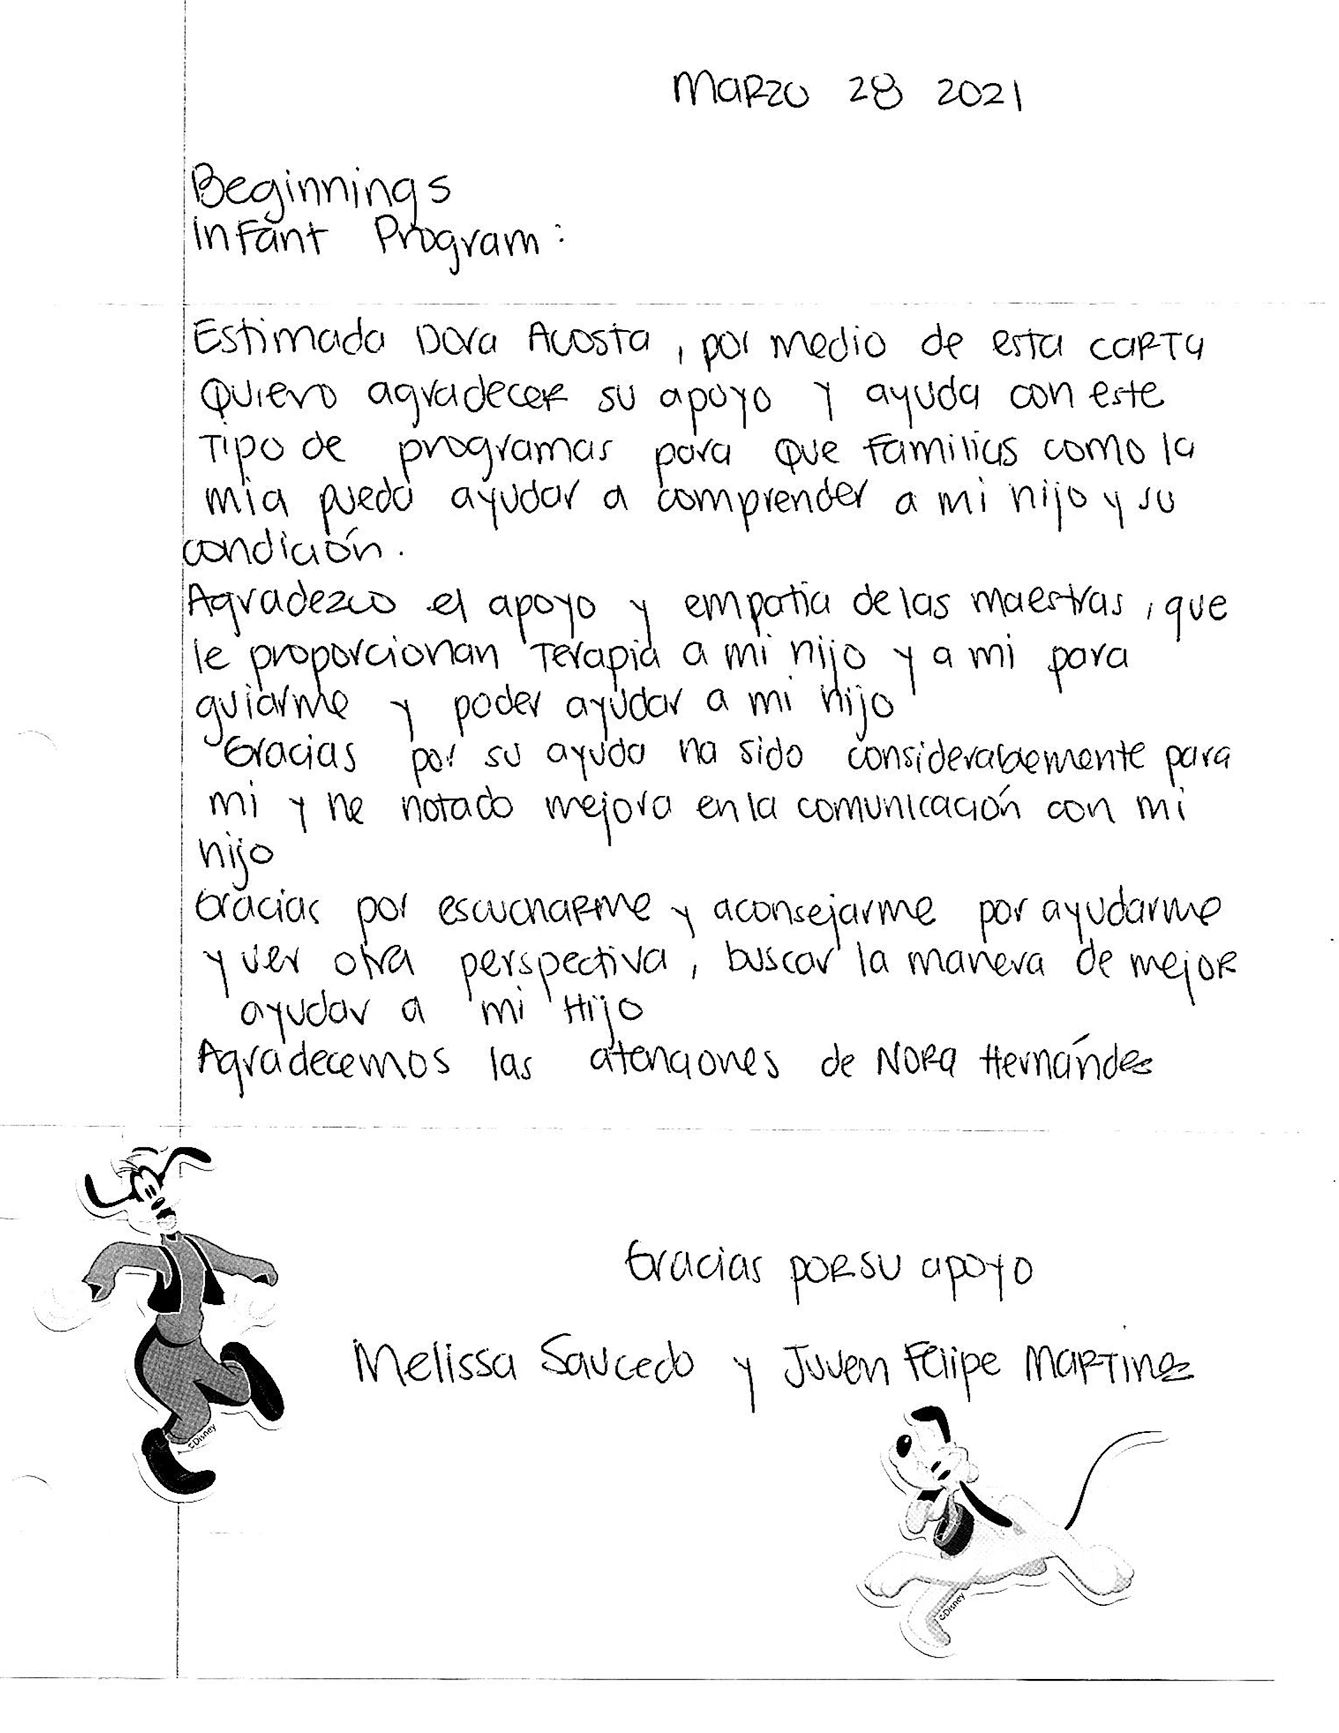 Marzo 28 2021
Beginnings
Infant Program:
Estimada Dora Acosta, por medio de esta carta
Quiero agradecer su apoyo y ayuda con este
tipo de programas para que familias como la
mia pueda ayudar a comprender a mi hijo y su
condición.
Agradezco el apoyo y empatia de las maestras, que
le proporcionan terapia a mi hijo y a mi para
guiarme y poder ayudar a mi hijo
Gracias por su ayuda ha sido considerablemente para
mi y he notado mejora en la comunicación con mi
hijo
Gracias por escucharme y aconsejarme por ayudarme
y ver otra perspectiva, buscar la manera de mejor
ayudar a mi Hijo
Agradecemos las atenciones de Nora Hernández
Gracias por su apoyo
Melissa Saucedo y Juven Felipe Martinez
©Disney
©Disney